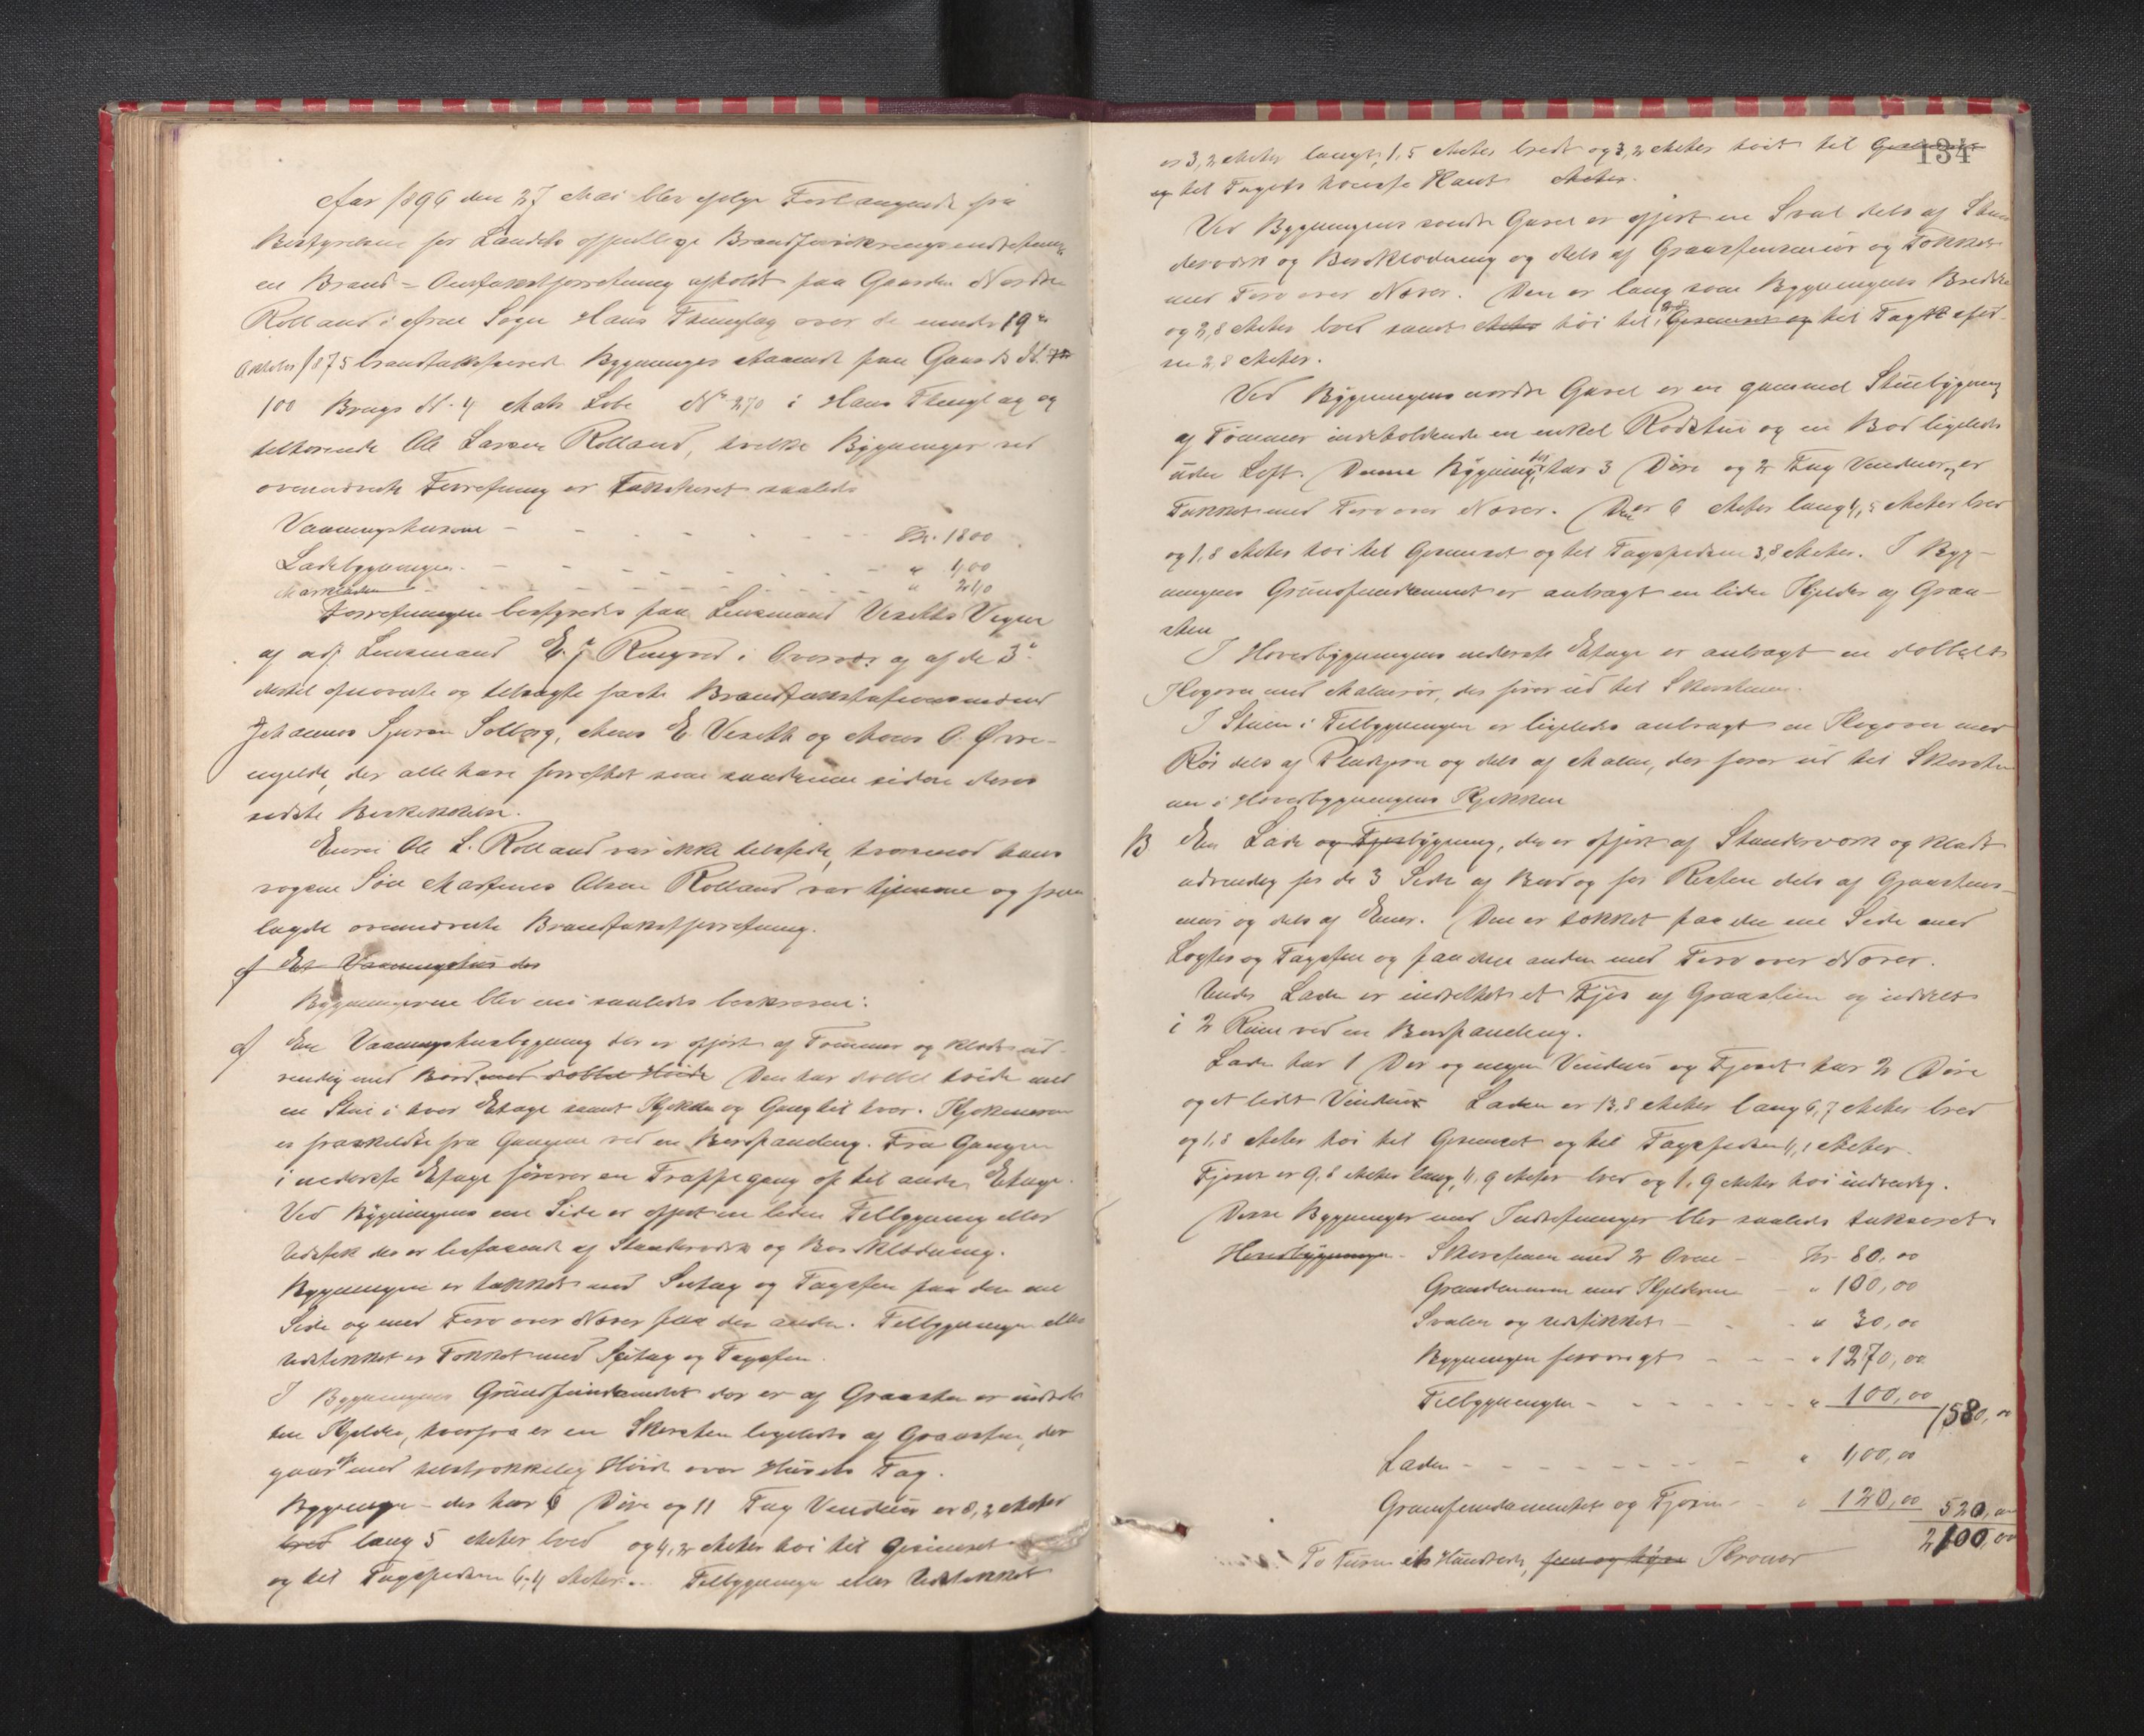 Aar 1896 den 27 Mai blev ifølge Forlangende fra
Bestyrelsen for Landets offentlige Brandforsikringsindretning
en Brand-Omtaxtforretning afholdt paa Gaarden Nordre
Rolland i Arne Sogn Hans Thinglag over de under 19de
Oktober 1875 brandtaksterede Bygninger staaende paa Gaards N.
100 Brugs N. 4 Mat. Løbe No 270 i Hans Thinglag og
tilhørende Ole Larsen Rolland, hvilke Bygninger ved
ovennævnte Forretning er Taksteret saaledes
Vaaningshusene - - - - - Kr. 1800
Ladebygningen - - - - - " 400
Markladen - - - - - " 240
Forretningen bestyredes paa Lensmand Viseths Vegne
af adj Lensmand E. J. Ringred i og af de 3de
dertil opnævnte og tilsagte faste Brandtakstationsmænd
Johannes Solberg, Mons E. Viseth og Mons O. Øvre-
, der alle have forrettet som saadanne siden deres
sidste Beskikkelse.
Eieren Ole L. Rolland var ikke tilstede, hvorimod hans
vogsne Søn Martinus Olsen Rolland var hjemme og frem
lagde ovennævnte Brandtakstforretning.
A Et Vaaningshus der
Bygningerne blev nu saaledes beskrevne:
A En Vaaningshusbygning der er opført af Tømmer og klædt ud-
vendig med Bord med dobbel Høide Den har dobbel høide med
en Stue i hver Etage samt Kjøkken og Gang til hver. Kjøkkenerne
er fraskildte fra Gangene ved en Bordpaneling. Fra Gangen
i nederste Etage fører en Trappegang op til anden Etage.
Ved Bygningens ene Side er opført en liden Tilbygning eller
Udstik der er bestaaende af Standerværk og Bordklædning.
Bygningen er tækket med Sutag og Tagsten paa den ene
Side og med Torv over Næver paa den anden. Tilbygningen eller
Udstikket er Tækket med Sutag og Tagsten.
I Bygningens Grundfundamentet der er af Graasten er indret
ten Kjelder, hvorfra er en Skorsten ligeledes af Graasten, der
gaar op med tilstrækkelig Høide over Husets Tag.
Bygningen - der har 6 Døre og 11 Fag Vinduer er 8,2 Meter
bred lang 5 Meter bred og 4,2 Meter høi til Gesimset
og til Tagspidsen 6,4 Meter. Tilbygningen eller Udstikket
134
er 3,2 Meter langt, 1,5 Meter bredt og 3,2 Meter høit til Gesimset
og til Tagets høieste Kant Meter.
Ved Bygningens søndre Gavel er opført en Sval dels af Stan
derværk og Bordklædning og dels af Graastensmur og Tækket
med Torv over Næver. Den er lang som Bygningens Bredde
og 2,8 Meter bred samt Meter høi til Gesimset og til Tag
2,8 Meter.
Ved Bygningens nordre Gavel er en gammel Stuebygning
af Tømmer indeholdende en enkel Rødstue og en Bod ligeledes
uden Loft. Denne Bygning, der har 3 Døre og 2 Fag Vinduer, er
Tækket med Torv over Næver. Den er 6 Meter lang 4,5 Meter bred
og 1,8 Meter høi til Gesimset og til Tagspidsen 3,8 Meter. I Byg-
ningens Grundfundament er anbragt en liden Kjelder af Graa-
sten
I Hovedbygningens nederste Etage er anbragt en dobbelt
Kogovn med Malmrør, der fører ud til Skorstenen.
I Stuen i Tilbygningen er ligeledes anbragt en Kogovn med
Rør dels af Pladejern og dels af Malm, der fører ud til Skorsten
en i Hovedbygningens Kjøkken
B En Lade og Fjøsbygning, der er opført af Standerværk og klædt
udvendig for de 3 Sider af Bord og for Resten dels af Graastens-
mur og dels af Ener. Den er tækket paa den ene Side med
Lægter og Tagsten og paa den anden med Torv over Næver.
Under Laden er indrettet et Fjøs af Graasten og inddelt
i 2 Rum ved en Bordpaneling.
Laden har 1 Dør og ingen Vinduer og Fjøset har 2 Døre
og et lidet Vindue Laden er 13,8 Meter lang 6,7 Meter bred
og 1,8 Meter høi til Gesimset og til Tagspidsen 4,1 Meter.
Fjøset er 9,8 Meter lang, 4,9 Meter bred og 1,9 Meter høi indvendig.
Disse Bygninger med Indretninger blev saaledes takseret.
Hovedbygningen - Skorstenen med 2 Ovne - Kr. 80,00
Grundmuren med Kjelderen - " 100,00
Svalen og Udstikket - - " 30,00
Bygningen forøvrigt - - - " 1270,00
Tilbygningen - - - - - " 100,00 1580,00
Laden - - - - - - - " 400,00
Grundfundamentet og Fjøsen - " 120,00 520,00
2100,00
To Tusen et Hundrede, Kroner